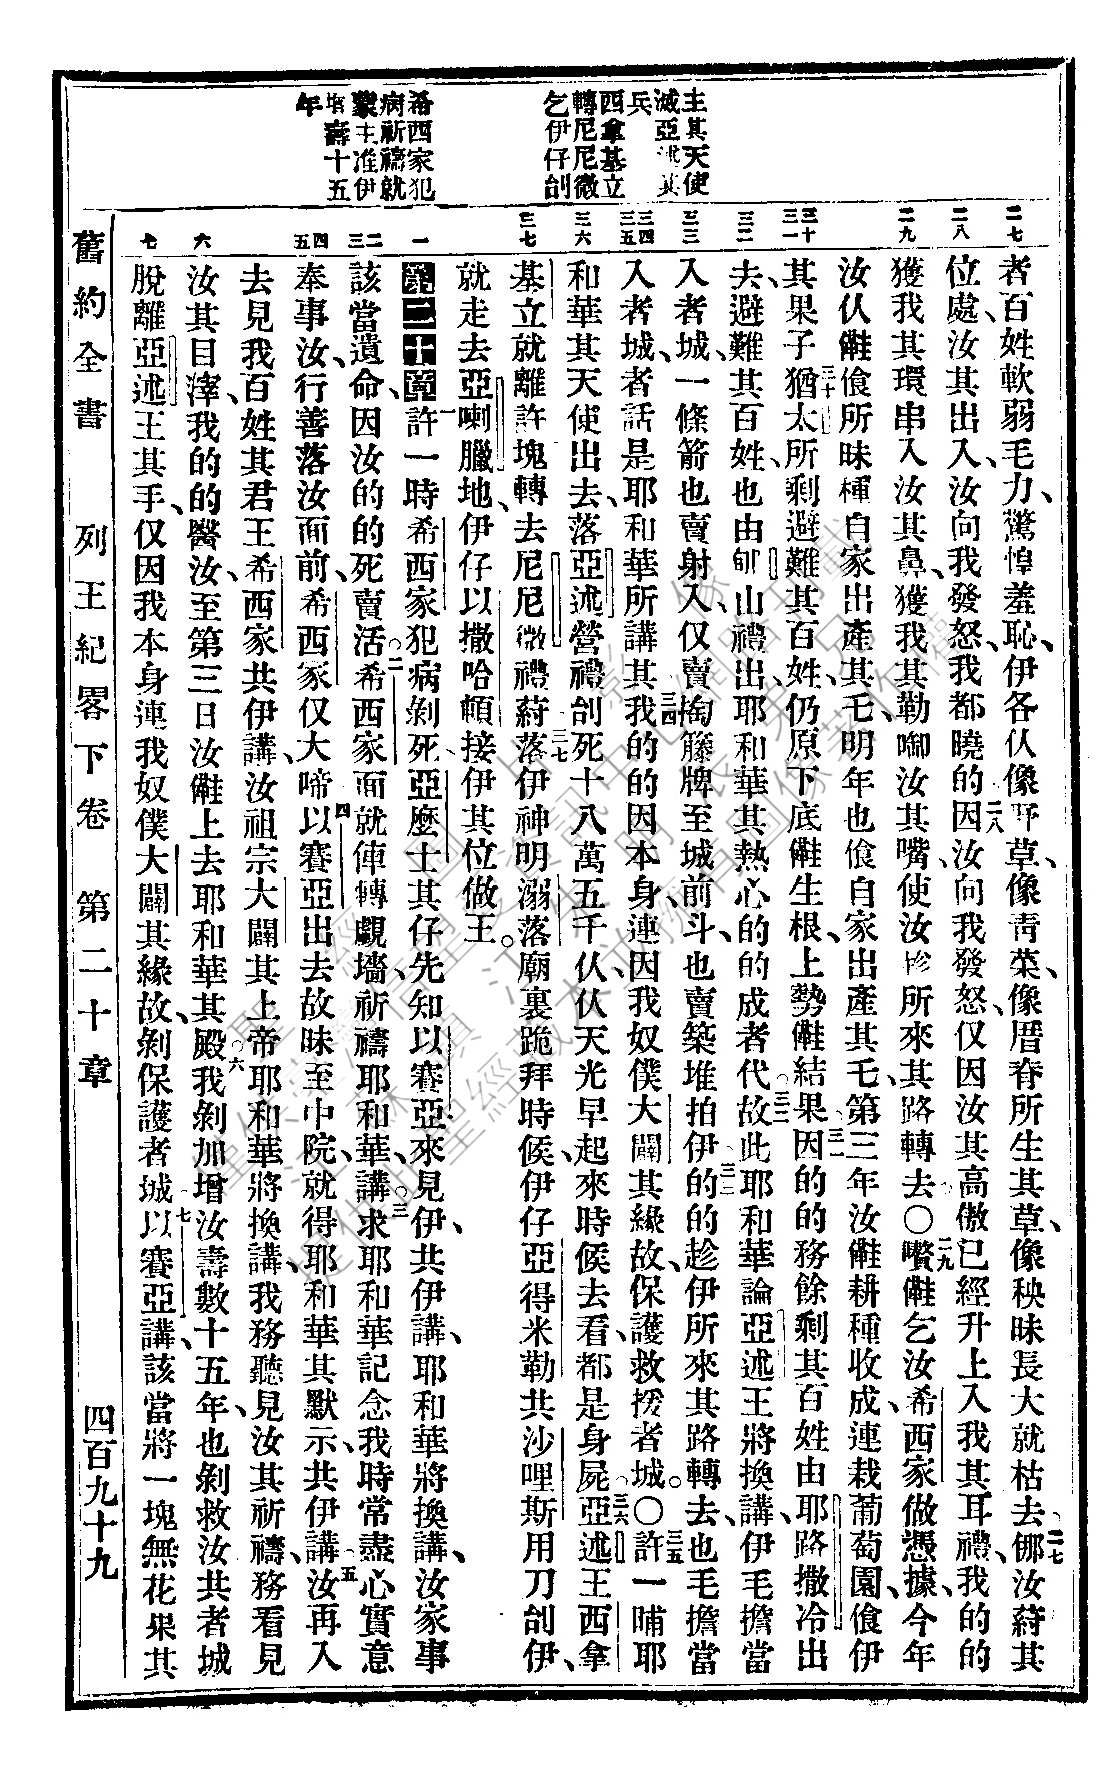 主其天使
滅亞述其
兵
西拿基立
轉尼尼微
乞伊仔刣
希西家犯
病祈禱就
蒙主准伊
增壽十五
年
二七
二八
二九
三十
三一
三二
三三
三四
三五
三六
三七
一
二
三
四
五
六
七
者百姓軟弱毛力、驚惶羞恥、伊各仈像野草、像青菜、像厝脊所生其草、像秧昧長大就枯去、二七汝徛其
位處、汝其出入、汝向我發怒、我都曉的、二八因汝向我發怒、仅因汝其高傲已經升上入我其耳禮、我的的
獲我其環串入汝其鼻、獲我其勒啣汝其嘴、使汝所來其路轉去〇二九乞汝希西家做憑據、今年
汝仈食所昧種自家出產其毛、明年也食自家出產其毛、第三年汝耕種收成、連栽葡萄園、食伊
其果子、三十猶太所剩避難其百姓、仍原下底生根、上勢結果、三一因的的務餘剩其百姓由耶路撒冷出
去、避難其百姓也由郇山禮出、耶和華其熱心的的成者代、三二故此耶和華論亞述王將換講、伊毛擔當
入者城、一條箭也賣射入、仅賣掏籐牌至城前斗、也賣築堆拍伊、三三的的趁伊所來其路轉去、也毛擔當
入者城、者話是耶和華所講其、三四我的的因本身、連因我奴僕大闢其緣故、保護救援者城。〇三五許一晡耶
和華其天使出去、落亞述營禮刣死十八萬五千仈、仈天光早起來時候去看、都是身屍、三六亞述王西拿
基立就離許塊、轉去尼尼微禮徛、三七落伊神明溺落廟裏跪拜時候、伊仔亞得米勒共沙哩斯用刀刣伊、
就走去亞喇臘地、伊仔以撒哈頓接伊其位做王。
第二十章一許一時希西家犯病剝死、亞麼士其仔先知以賽亞來見伊、共伊講、耶和華將換講、汝家事
該當遺命、因汝的的死賣活。二希西家面就俥轉覷墻、祈禱耶和華、講、三求耶和華記念我時常盡心實意
奉事汝、行善落汝面前、希西家仅大啼、四以賽亞出去、故昧至中院、就得耶和華其默示、共伊講、五汝再入
去見我百姓其君王希西家、共伊講、汝祖宗大闢其上帝耶和華將換講、我務聽見汝其祈禱、務看見
汝其目滓、我的的醫汝、至第三日汝上去耶和華其殿、六我剝加增汝壽數十五年、也剝救汝共者城
脫離亞述王其手、仅因我本身、連我奴僕大闢其緣故、剝保護者城、七以賽亞講、該當將一塊無花果其
舊約全書　列王紀畧下卷　第二十章　四百九十九